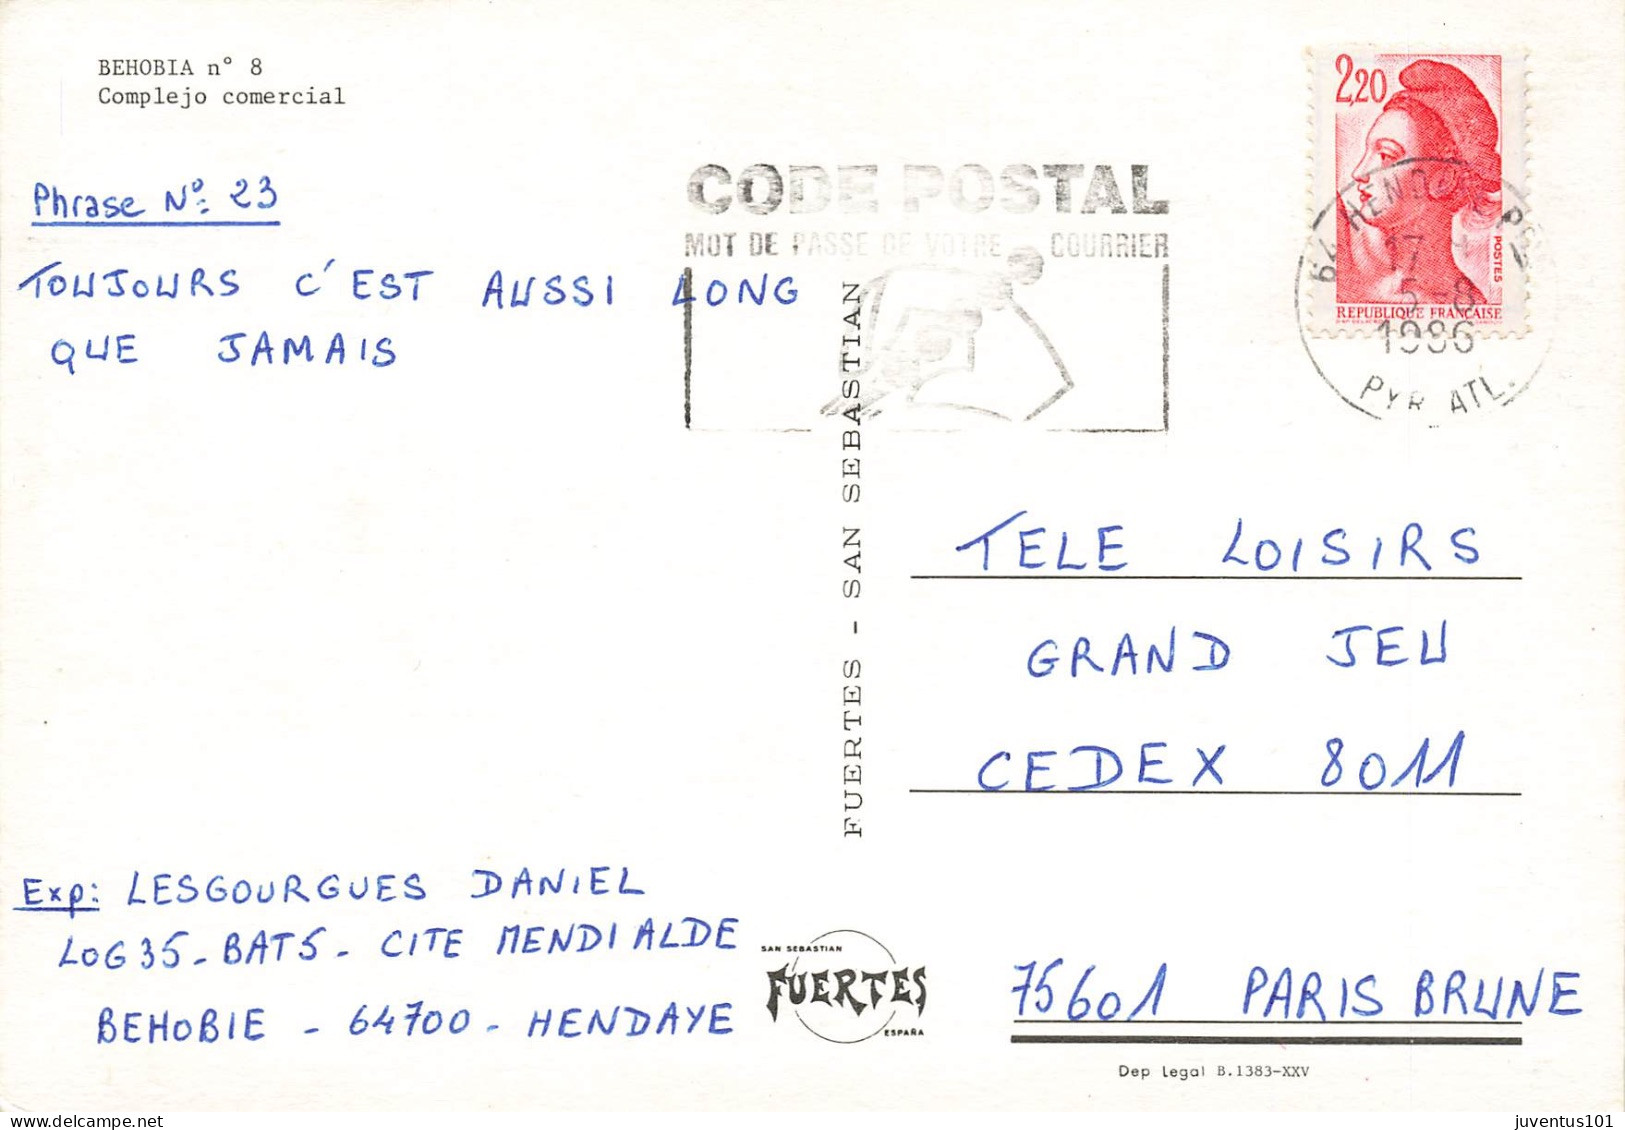 BEHOBIA n° 8
Complejo comercial
Phrase N°: 23
TOUJOURS C'EST AUSSI LONG
QUE JAMAIS
CODE POSTAL
MOT DE PASSE DE VOTRE COURRIER
2,20
POSTES
REPUBLIQUE FRANÇAISE
64 HENDAYE
17
5-8
1986
PYR. ATL.
FUERTES - SAN SEBASTIAN
TELE LOISIRS
GRAND JEU
CEDEX 8011
75601 PARIS BRUNE
Exp: LESGOURGUES DANIEL
LOG35-BAT5- CITE MENDI ALDE
BEHOBIE - 64700 - HENDAYE
SAN SEBASTIAN
FUERTES
ESPAÑA
Dep Legal B.1383-XXV
juventus101